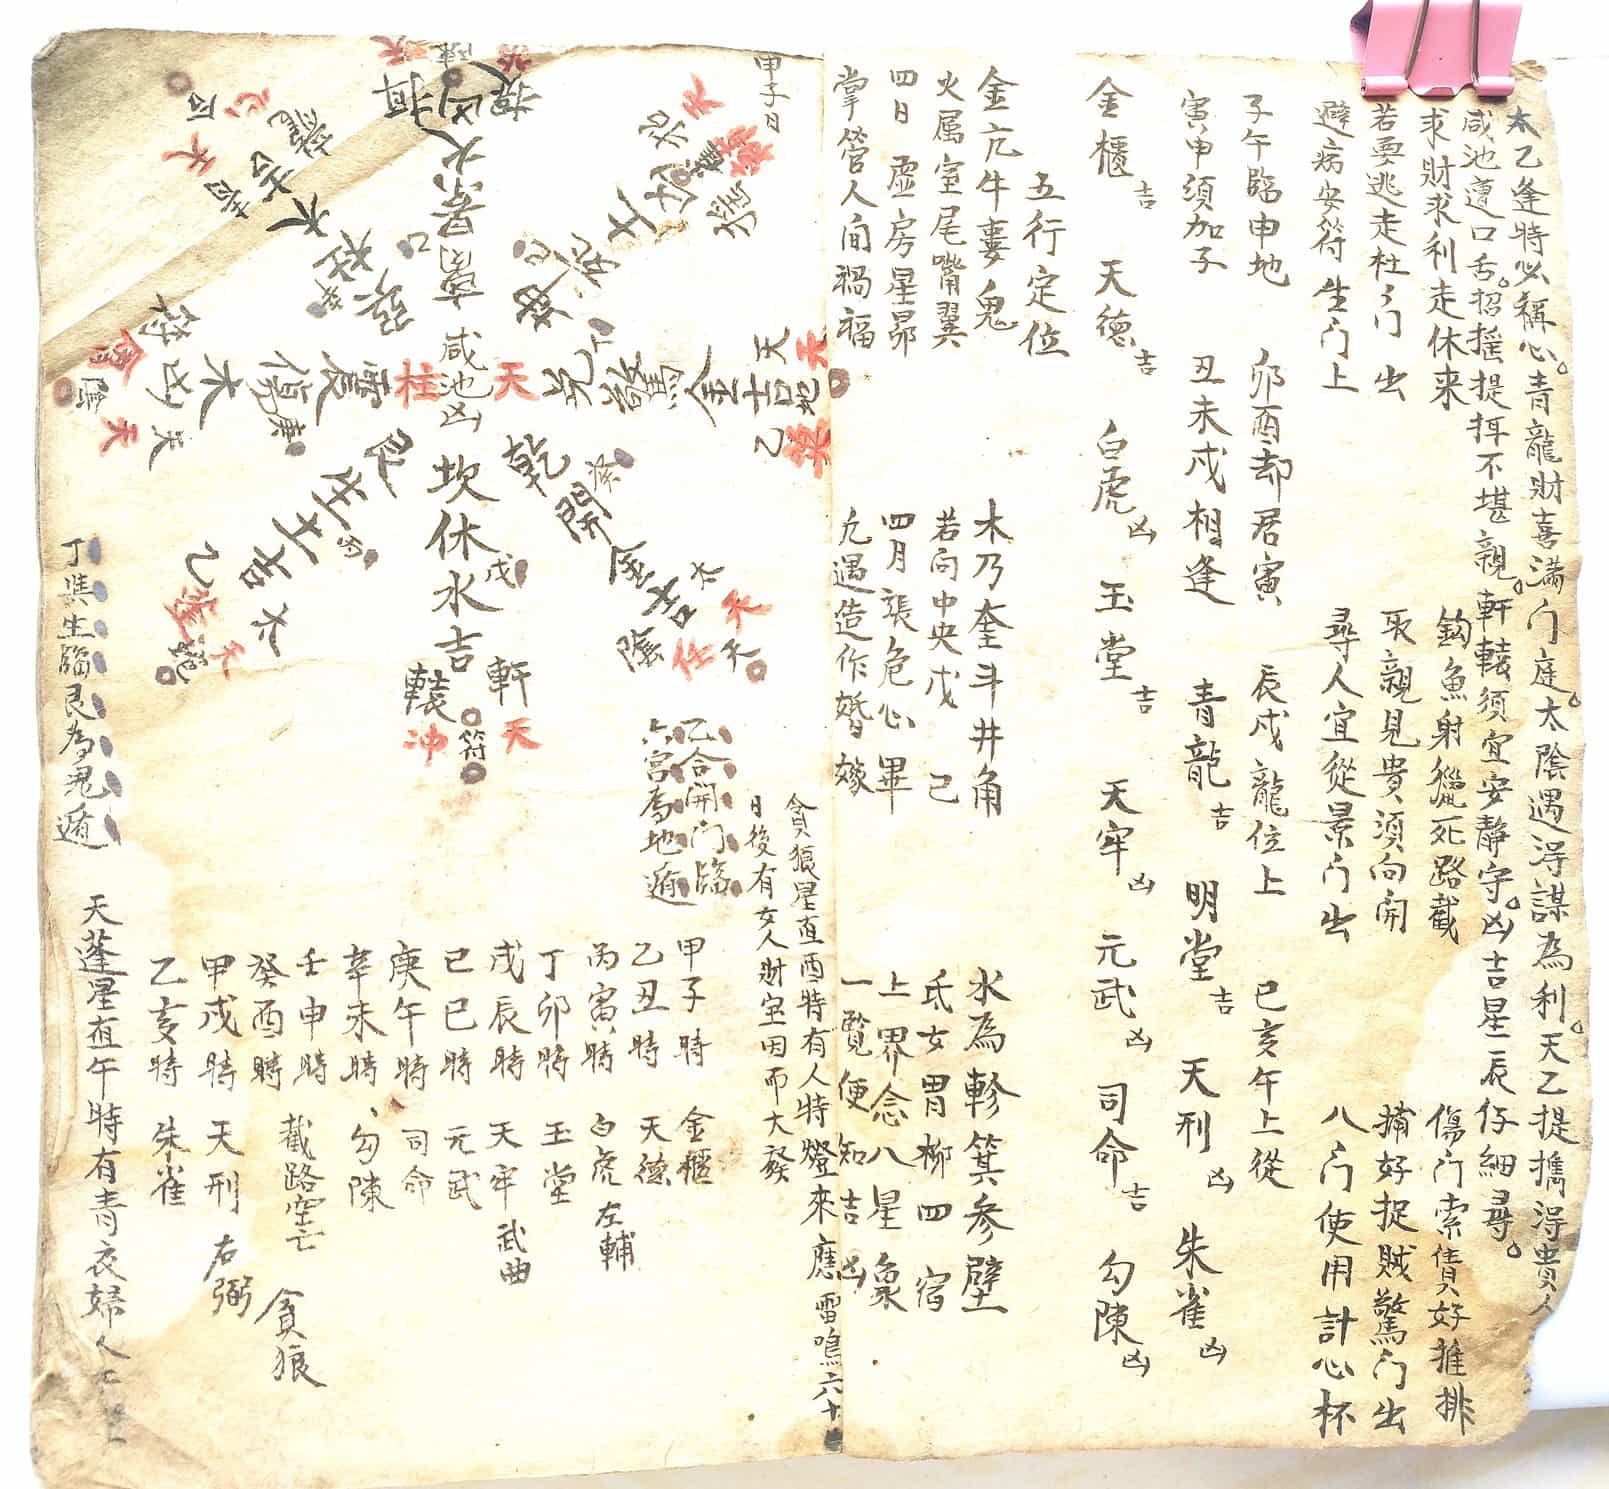 太乙逢時必稱心。青龍財喜滿门庭。太陰遇淂謀為利。天乙提擕淂貴人
咸池遭口舌。招摇提㧅不堪親。軒轅須宜安静守。凶吉星辰仔細尋。
求財求利走休来 鈎魚射獵死路截 傷门索債好推排
若要逃走杜门出 取親見貴須向開 捕好捉賊驚门出
避病安符生门上 尋人宜從景门出 八门使用計心杯
子午臨申地 卯酉却居寅 辰戍龍位上 巳亥午上從
寅申須加子 丑未戍相逢 青龍吉 明堂吉 天刑凶 朱雀凶
金櫃吉 天德吉 白虎凶 玉堂吉 天牢凶 元武凶 司命吉 勾陳凶
五行定位
金亢牛婁鬼 木乃奎斗井角 水為軫箕参壁
火属室尾嘴翼 若向中央戊己 氐女胃柳四宿
四日虚房星昴 四月張危心畢 上界念八星象
掌管人间禍福 凡遇造作婚嫁 一覧便知吉凶
甲子日
貪狼星直酉時有人特燈來應雷鳴六十
日後有女人財宝因而大發
甲子時 金櫃
乙丑時 天德
丙寅時 白虎 左輔
丁卯時 玉堂
戌辰時 天牢 武曲
已巳時 元武
庚午時 司命
辛未時 勾陳
壬申時 截路空亡
癸酉時 貪狼
甲戍時 天刑 右弼
乙亥時 朱雀
天蓬星直午時有青衣婦人
乙合開门臨
六宮為地遁
丁
生臨艮為鬼遁
坎休水吉
戊
軒轅
天冲
符
乾開金吉
癸
陰
天任
兌驚金吉
丁
地
乙
天禁
天柱
咸池凶
離景火凶
坤死土凶
己
天
巽杜木吉
青龍
天心
震傷木凶
庚
符
陰
天
艮生土吉
乙
天蓬